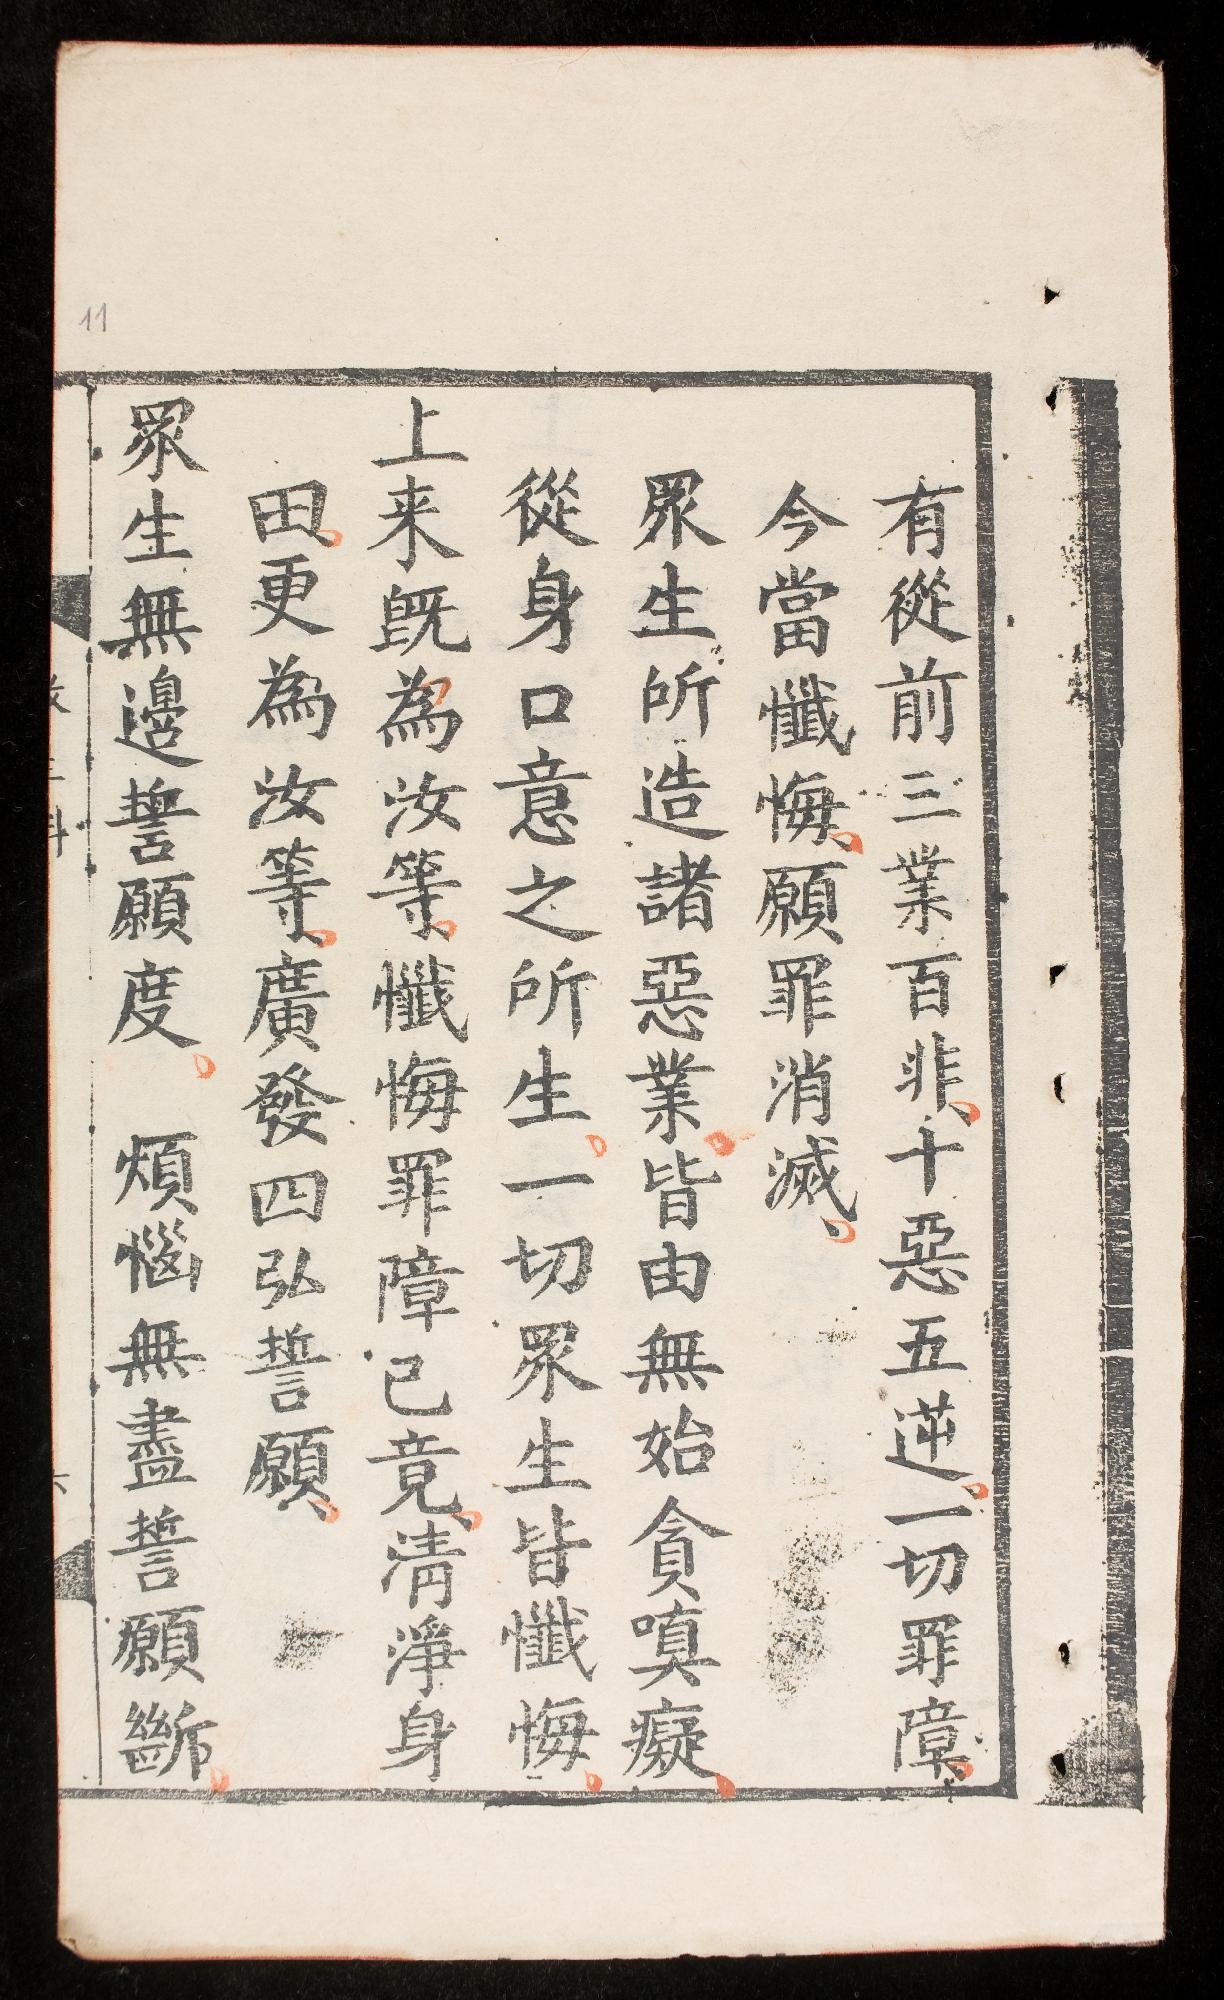 11
有從前三業百非、十惡五逆、一切罪障、
今當懺悔、願罪消滅、
眾生所造諸惡業皆由無始貪嗔癡
從身口意之所生一切眾生皆懺悔
上来既為汝等、懺悔罪障已竟、清淨身
田更為汝等、廣發四弘誓願、
眾生無邊誓願度 煩惱無盡誓願斷